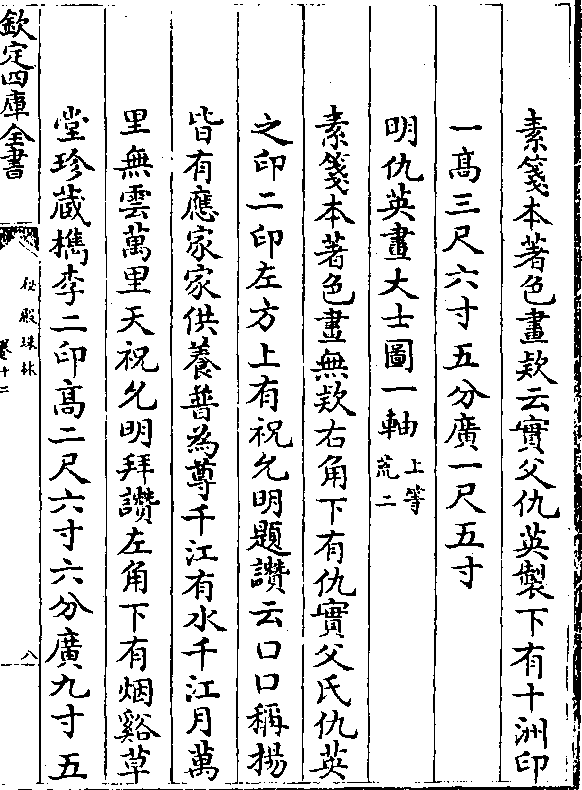 素箋本著色畫款云實父仇英製下有十洲印
一高三尺六寸五分廣一尺五寸
明仇英畫大士圖一軸上等荒二
素箋本著色畫無款右角下有仇實父氏仇英
之印二印左方上有祝允明題讚云口口稱揚
皆有應家家供養普為尊千江有水千江月萬
里無雲萬里天祝允明拜讚左角下有烟谿草
堂珍藏檇李二印高二尺六寸六分廣九寸五
欽定四庫全書
秘殿珠林
卷十二
八